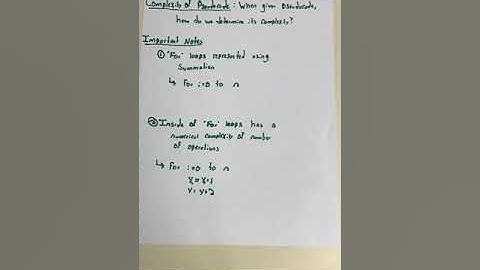 Complexity of Pseudocode: When given Pseudocode,
how do we determine its complexity?
Important Notes
① "For" loops represented using
Summation
↳ For i=0 to n
② Inside of "For" loops has a
numerical complexity of number
of operations
↳ For i=0 to n